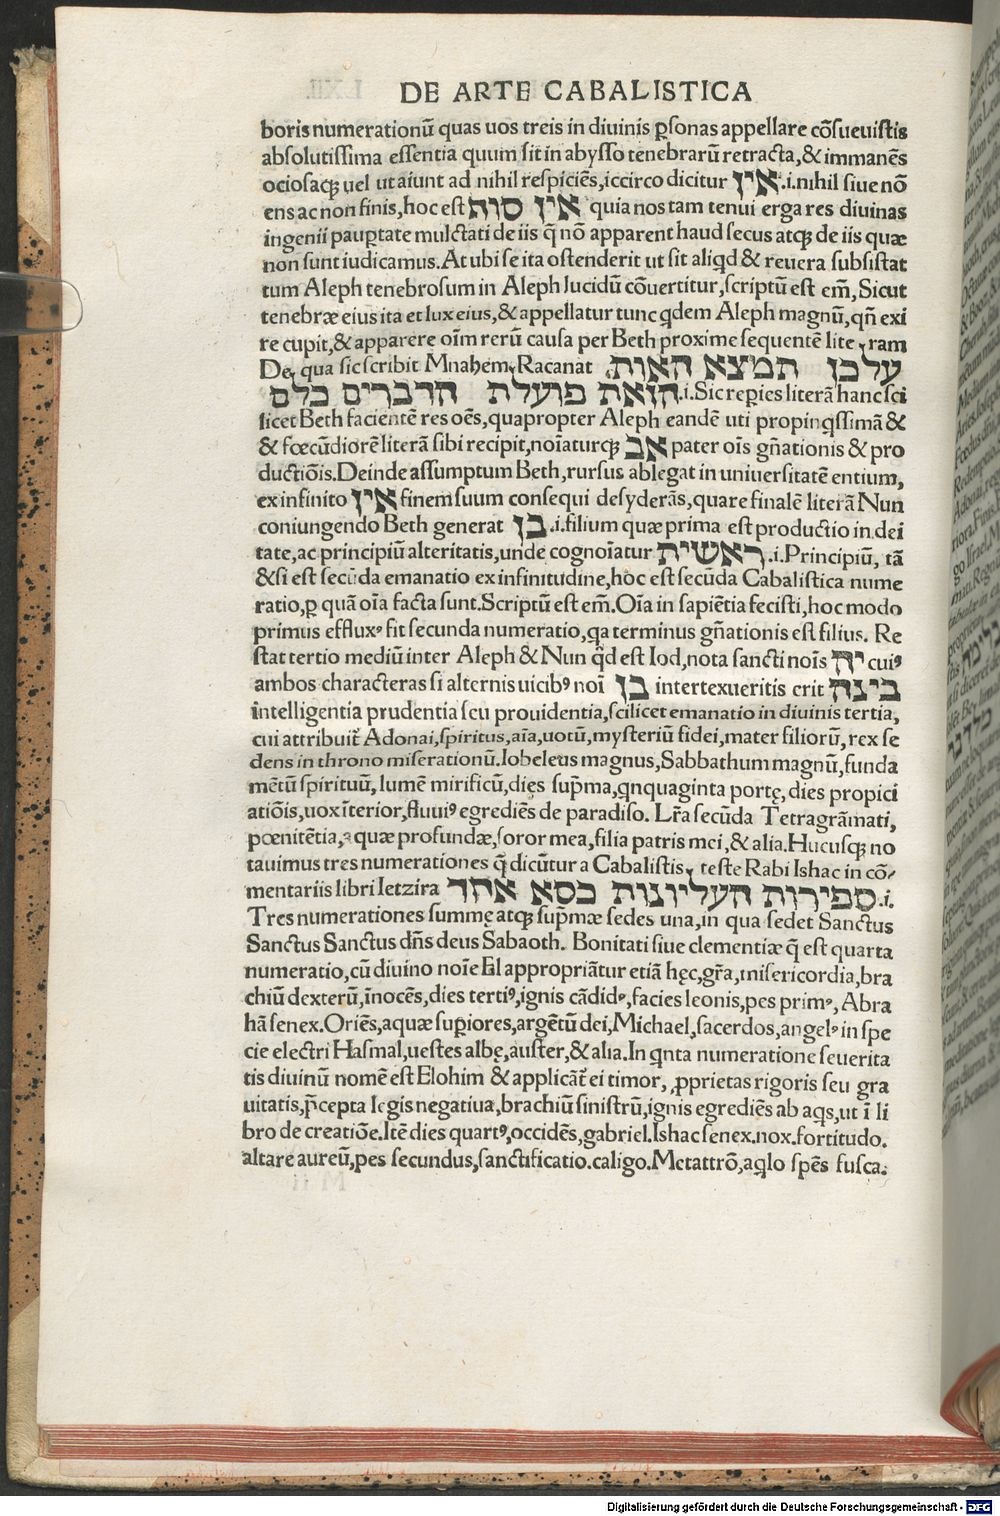 DE ARTE CABALISTICA
boris numerationū quas uos treis in diuinis ꝑsonas appellare cōsueuistis
absolutissima essentia quum sit in abysso tenebrarū retracta,& immanēs
ociosaqꝫ uel ut aiunt ad nihil respiciēs,iccirco dicitur אין.i.nihil siue nō
ens ac non finis,hoc est אין סוף quia nos tam tenui erga res diuinas
ingenii pauꝑtate mulctati de iis q̄ nō apparent haud secus atqꝫ de iis quæ
non sunt iudicamus.At ubi se ita ostenderit ut sit aliqd & reuera subsistat
tum Aleph tenebrosum in Aleph lucidū cōuertitur,scriptū est em̄, Sicut
tenebræ eius ita et lux eius,& appellatur tunc qdem Aleph magnū,qn̄ exi
re cupit,& apparere oīm rerū causa per Beth proxime sequentē lite ram
De qua sic scribit Mnahem Racanat על כן תמצא האות
הזאת פועלת הדברים כלם.i.Sic reꝑies literā hanc sci
licet Beth facientē res oēs,quapropter Aleph eandē uti propinqssimā &
& fœcūdiorē literā sibi recipit,noīaturqꝫ אב pater oīs gn̄ationis & pro
ductiōis.Deinde assumptum Beth,rursus ablegat in uniuersitatē entium,
ex infinito אין finem suum consequi desyderās,quare finalē literā Nun
coniungendo Beth generat בן.i.filium quæ prima est productio in dei
tate,ac principiū alteritatis,unde cognoīatur ראשית.i.Principiū, tā
& si est secūda emanatio ex infinitudine,hoc est secūda Cabalistica nume
ratio,ꝑ quā oīa facta sunt.Scriptū est em̄.Oīa in sapiētia fecisti,hoc modo
primus effluxꝰ fit secunda numeratio,qa terminus gn̄ationis est filius. Re
stat tertio mediū inter Aleph & Nun qd̄ est Iod,nota sancti noīs יה cuiꝰ
ambos characteras si alternis uicibꝰ noī בן intertexueritis erit בינה
intelligentia prudentia seu prouidentia,scilicet emanatio in diuinis tertia,
cui attribuit᷑ Adonai,spiritus,aīa,uotū,mysteriū fidei,mater filiorū,rex se
dens in throno miserationū.Iobeleus magnus,Sabbathum magnū,funda
mētū spirituū, lumē mirificū,dies sup̄ma,qnquaginta portę, dies propici
atiōis,uox īterior,fluuiꝰ egrediēs de paradiso. Lr̄a secūda Tetragrāmati,
pœnitētia,aquæ profundæ,soror mea,filia patris mei,& alia.Hucusqꝫ no
tauimus tres numerationes q̄ dicūtur a Cabalistis teste Rabi Ishac in cō-
mentariis libri Ietzira ספירות העליונות כסא אחד.i.
Tres numerationes summę atqꝫ sup̄mæ sedes una,in qua sedet Sanctus
Sanctus Sanctus dn̄s deus Sabaoth. Bonitati siue clementiæ q̄ est quarta
numeratio,cū diuino noīe El appropriātur etiā hęc,gr̄a,misericordia,bra
chiū dexterū,īnocēs,dies tertiꝰ,ignis cādidꝰ,facies leonis,pes primꝰ, Abra
hā senex.Oriēs,aquæ suꝑiores,argētū dei,Michael,sacerdos,angelꝰ in spe
cie electri Hasmal,uestes albę,auster,& alia.In qnta numeratione seuerita
tis diuinū nomē est Elohim & applicāt᷑ ei timor, ꝓprietas rigoris seu gra
uitatis,p̄cepta legis negatiua,brachiū sinistrū,ignis egrediēs ab aqs,ut ī li
bro de creatiōe.Itē dies quartꝰ,occidēs,gabriel.Ishac senex.nox.fortitudo.
altare aureū,pes secundus,sanctificatio.caligo.Metattrō,aqlo spēs fusca.
Digitalisierung gefördert durch die Deutsche Forschungsgemeinschaft - DFG